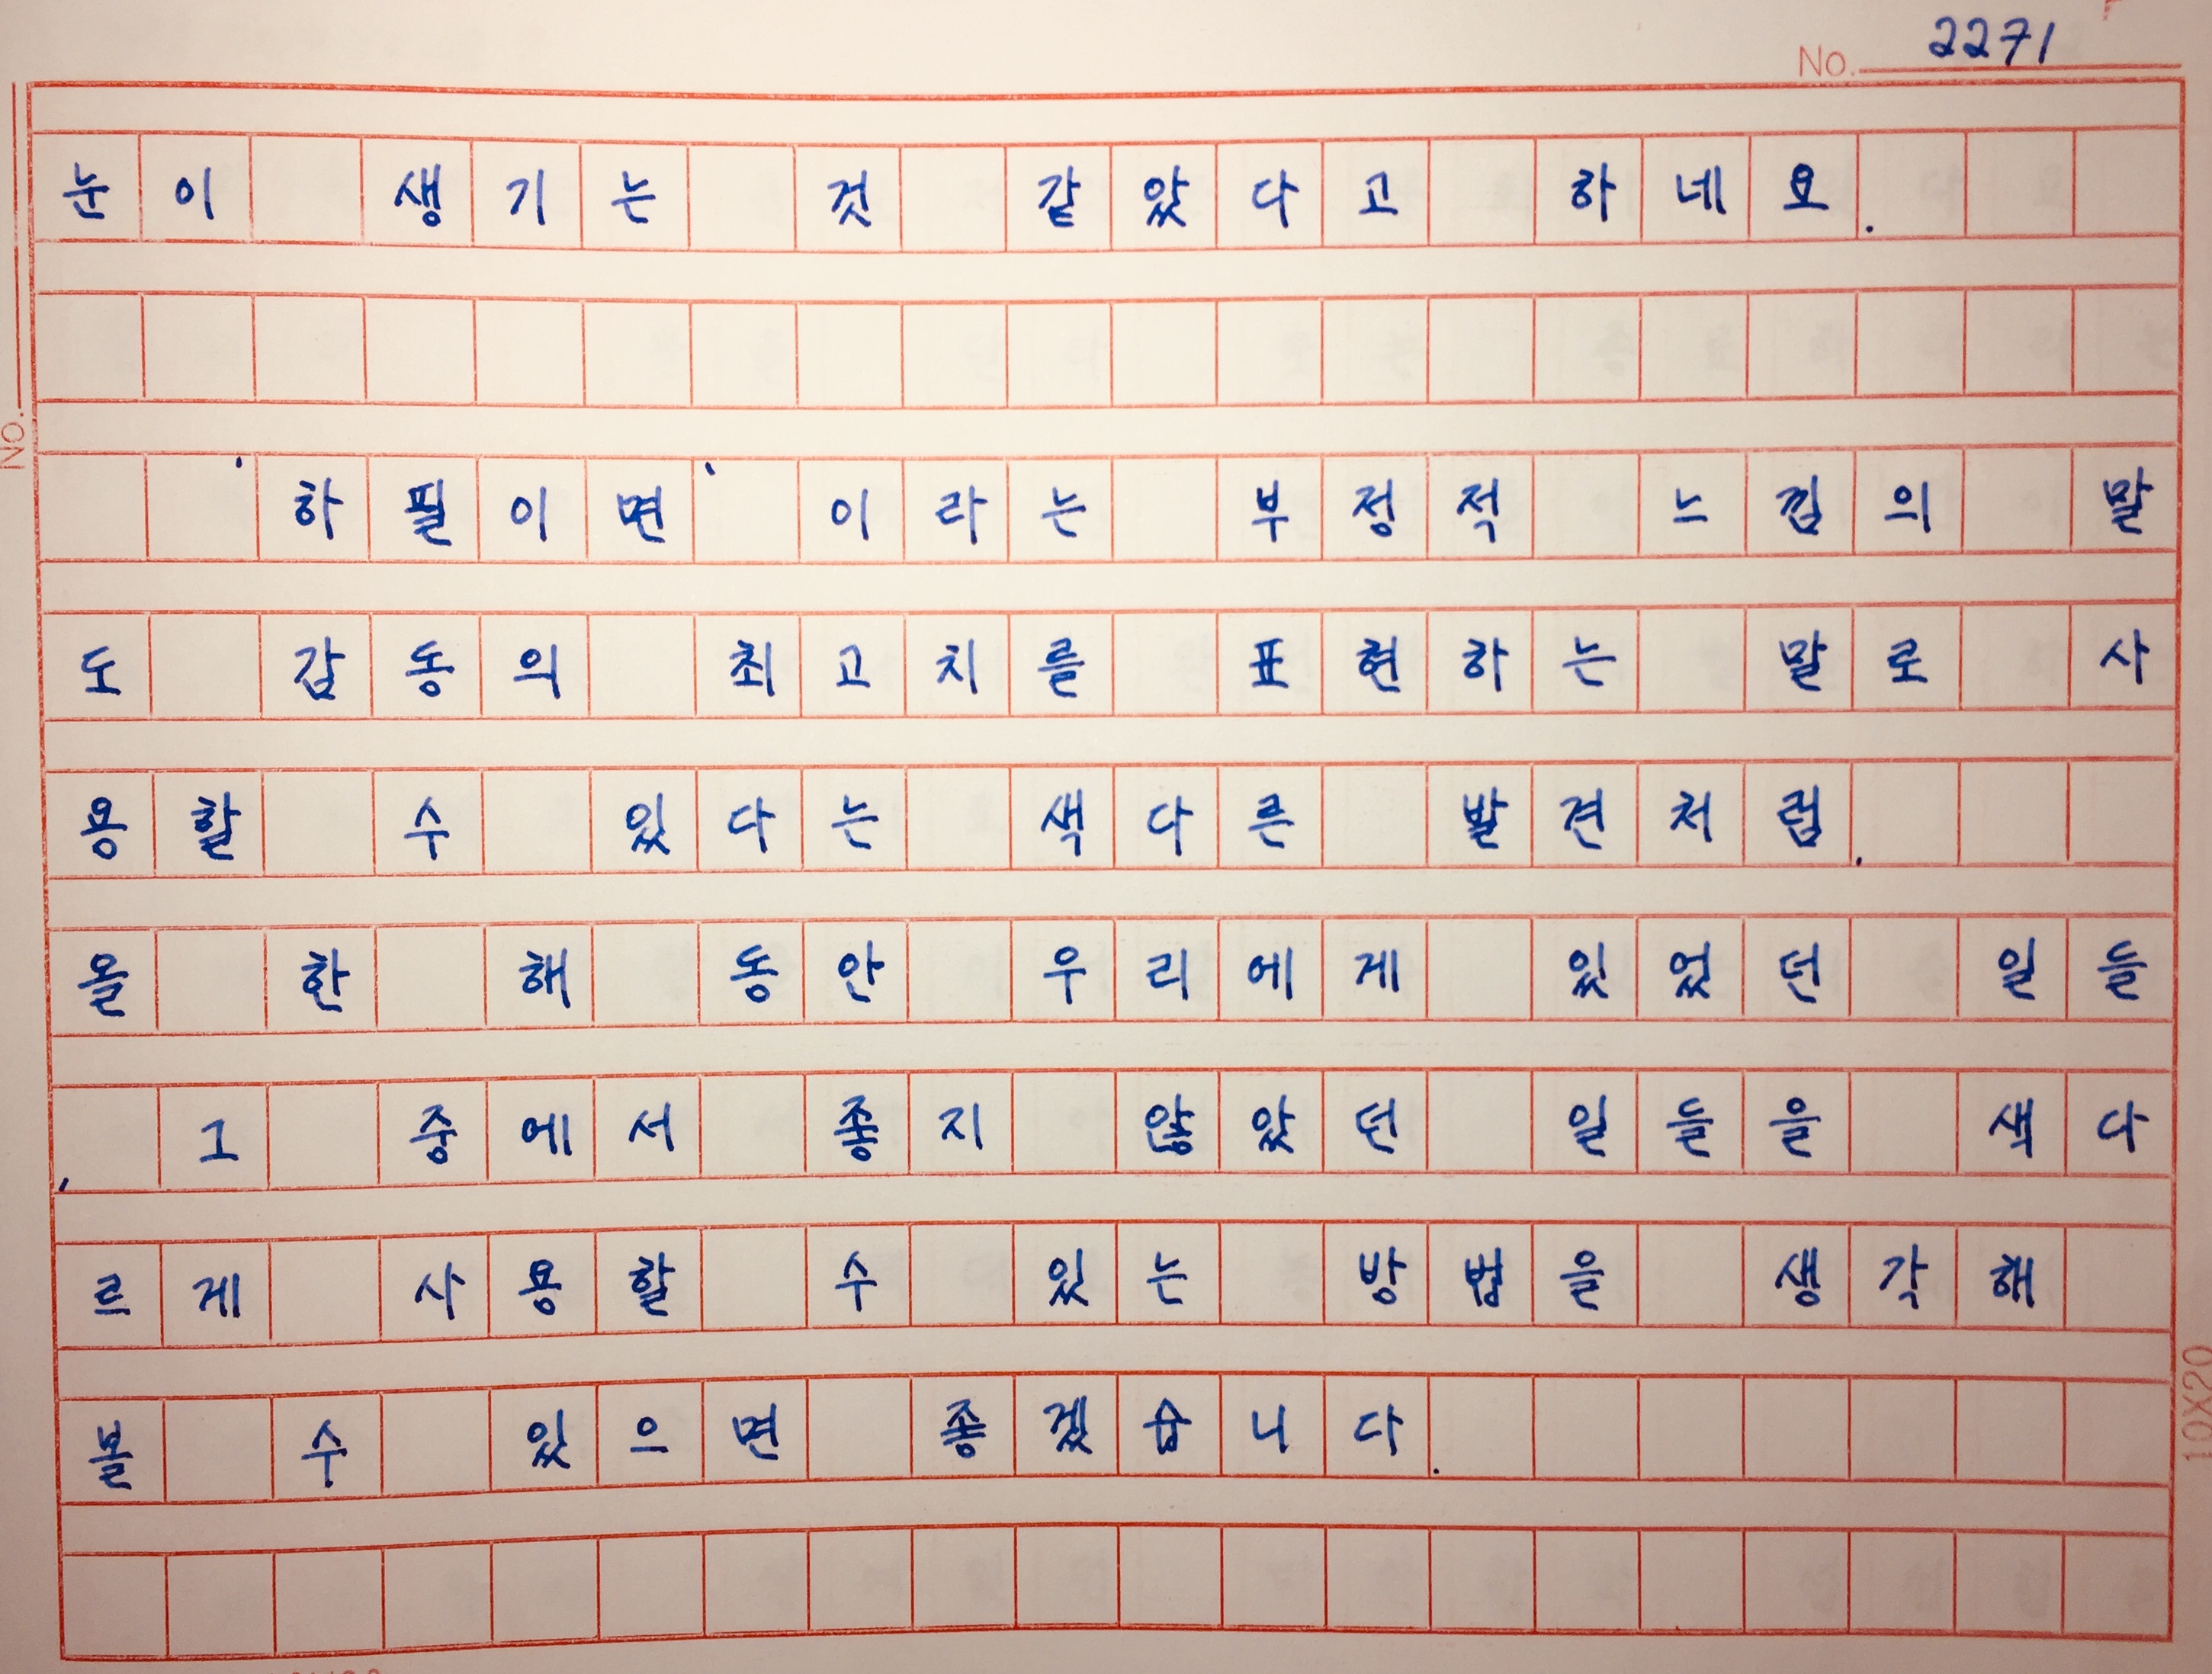 No. 2271
눈이 생기는 것 같았다고 하네요.
No.
'하필이면' 이라는 부정적 느낌의 말
도 감동의 최고치를 표현하는 말로 사
용할 수 있다는 색다른 발견처럼.
올 한 해 동안 우리에게 있었던 일들
, 그 중에서 좋지 않았던 일들을 색다
르게 사용할 수 있는 방법을 생각해
볼 수 있으면 좋겠습니다.
10X20